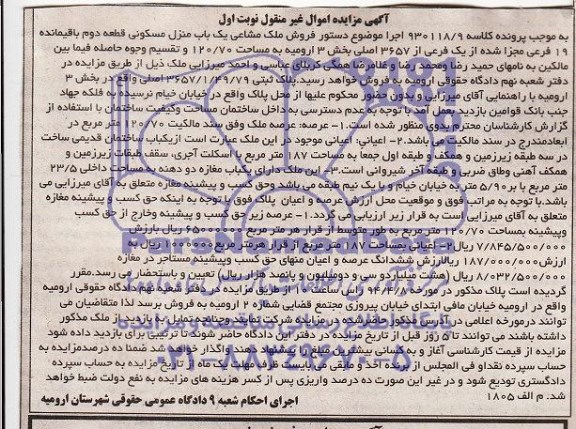 آگهی مزایده اموال غیر منقول نوبت اول
به موجب پرونده کلاسه ۹۳۰۱۱۸/۹ اجرا موضوع دستور فروش ملک مشاعی یک باب منزل مسکونی قطعه دوم باقیمانده
۱۹ فرعی مجزا شده از یک فرعی از ۳۶۵۷ اصلی بخش ۳ ارومیه به مساحت ۱۲۰/۷۰ و تقسیم وجوه حاصله فیما بین
مالکین به نامهای حمید رضا و محمد رضا و غلامرضا همگی کربلای عباسی و احمد میرزایی ملک ذیل از طریق مزایده در
دفتر شعبه نهم دادگاه حقوقی ارومیه به فروش خواهد رسید.پلاک ثبتی ۳۶۵۷/۱/۴۹/۷۹ اصلی واقع در بخش ۳
ارومیه با راهنمایی آقای میرزایی و بدون حضور محکوم علیها از محل پلاک واقع در خیابان خیام نرسیده به فلکه جهاد
جنب بانک قوامین بازدید بعمل آمد با توجه به عدم دسترسی به داخل ساختمان مساحت وکیفیت ساختمان با استفاده از
گزارش کارشناسان محترم بدوی منظور شده است.۱- عرصه: عرصه ملک وفق سند مالکیت ۱۲۰/۷۰ متر مربع در
ابعادمندرج در سند مالکیت می باشد.۲- اعیانی: اعیانی موجود در این ملک عبارت است ازیکباب ساختمان قدیمی ساخت
در سه طبقه زیرزمین و همکف و طبقه اول جمعا به مساحت ۱۸۷ متر مربع با اسکلت آجری، سقف طبقات زیرزمین و
همکف آهنی وطاق ضربی و طبقه آخر شیروانی است.۳- این ملک دارای یکباب مغازه دو دهنه به مساحت داخلی ۲۳/۵
متر مربع با بر ۵/۹۰ متر به خیابان خیام و با یک نیم طبقه می باشد وحق کسب و پیشینه مغازه متعلق به آقای میرزایی می
باشد.با توجه به مراتب فوق و موقعیت محل ارزش عرصه و اعیان پلاک فوق با توجه به اینکه حق کسب پیشینه مغازه
متعلق به آقای میرزایی است به قرار زیر ارزیابی می گردد.۱- عرصه زیر حق کسب و پیشینه وخارج از حق کسب
وپیشینه بمساحت ۱۲۰/۷۰ متر مربع به طور متوسط از قرار هر متر مربع ۶۵۰۰۰۰۰۰ ریال باارزش
۷/۸۴۵/۵۰۰/۰۰۰ ریال۲- اعیانی بمساحت ۱۸۷ متر مربع از قرار هرمتر مربع ریال به
ارزش ۱۸۷/۰۰۰/۰۰۰ریال باارزش ششدانگ عرصه و اعیان منهای حق کسب وپیشینه مستاجر در مغازه
۸/۰۳۲/۵۰۰/۰۰۰ ریال (هشت میلیارد سی و دومیلیون و پانصد هزار ریال) تعیین و باستحضار می رسد.مقرر
گردیده است پلاک مذکور در ساعت ۱۰ از طریق مزایده در دفتر شعبه نهم دادگاه حقوقی ارومیه
واقع در ارومیه خیابان مافی ابتدای خیابان پیروزی مجتمع قضایی شماره ۲ ارومیه به فروش برسد لذا متقاضیان می
توانند درمورخه اعلامی در آدرس مذکور حاضرشده در مزایده شرکت نمایند وچنانچه تمایل به بازدید از ملک مذکور
داشته باشند می توانند تا ۵ روز قبل از تاریخ مزایده در دفتر این دادگاه حاضر شوند تا ترتیبی برای بازدید داده شود
مزایده از قیمت کارشناسی آغاز و به کسانی بیشترین مبلغ را پیشنهاد دهند واگذار خواهد شد ضمنا ده درصدمزایده به
حساب سپرده نقداو فی المجلس از برنده اخذ و مابقی می بایست ظرف مهلت یک ماه از تاریخ مزایده به حساب سپرده
دادگستری تودیع شود و در غیر این صورت ده درصد واریزی پس از کسر هزینه های مزایده به نفع دولت ضبط خواهد
شد. م الف ۱۸۰۵
اجرای احکام شعبه ۹ دادگاه عمومی حقوقی شهرستان ارومیه
۰۲۱-۸۸۳۴۹۶۷۰-۵